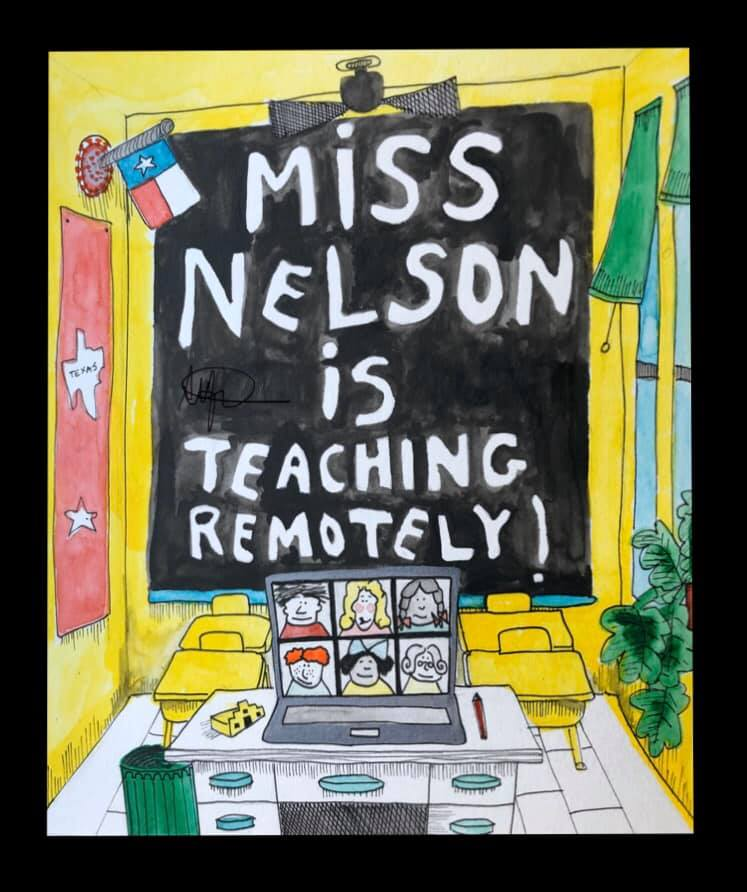 MiSS
NELSON
iS
TEACHING
REMOTELY!
TEXAS